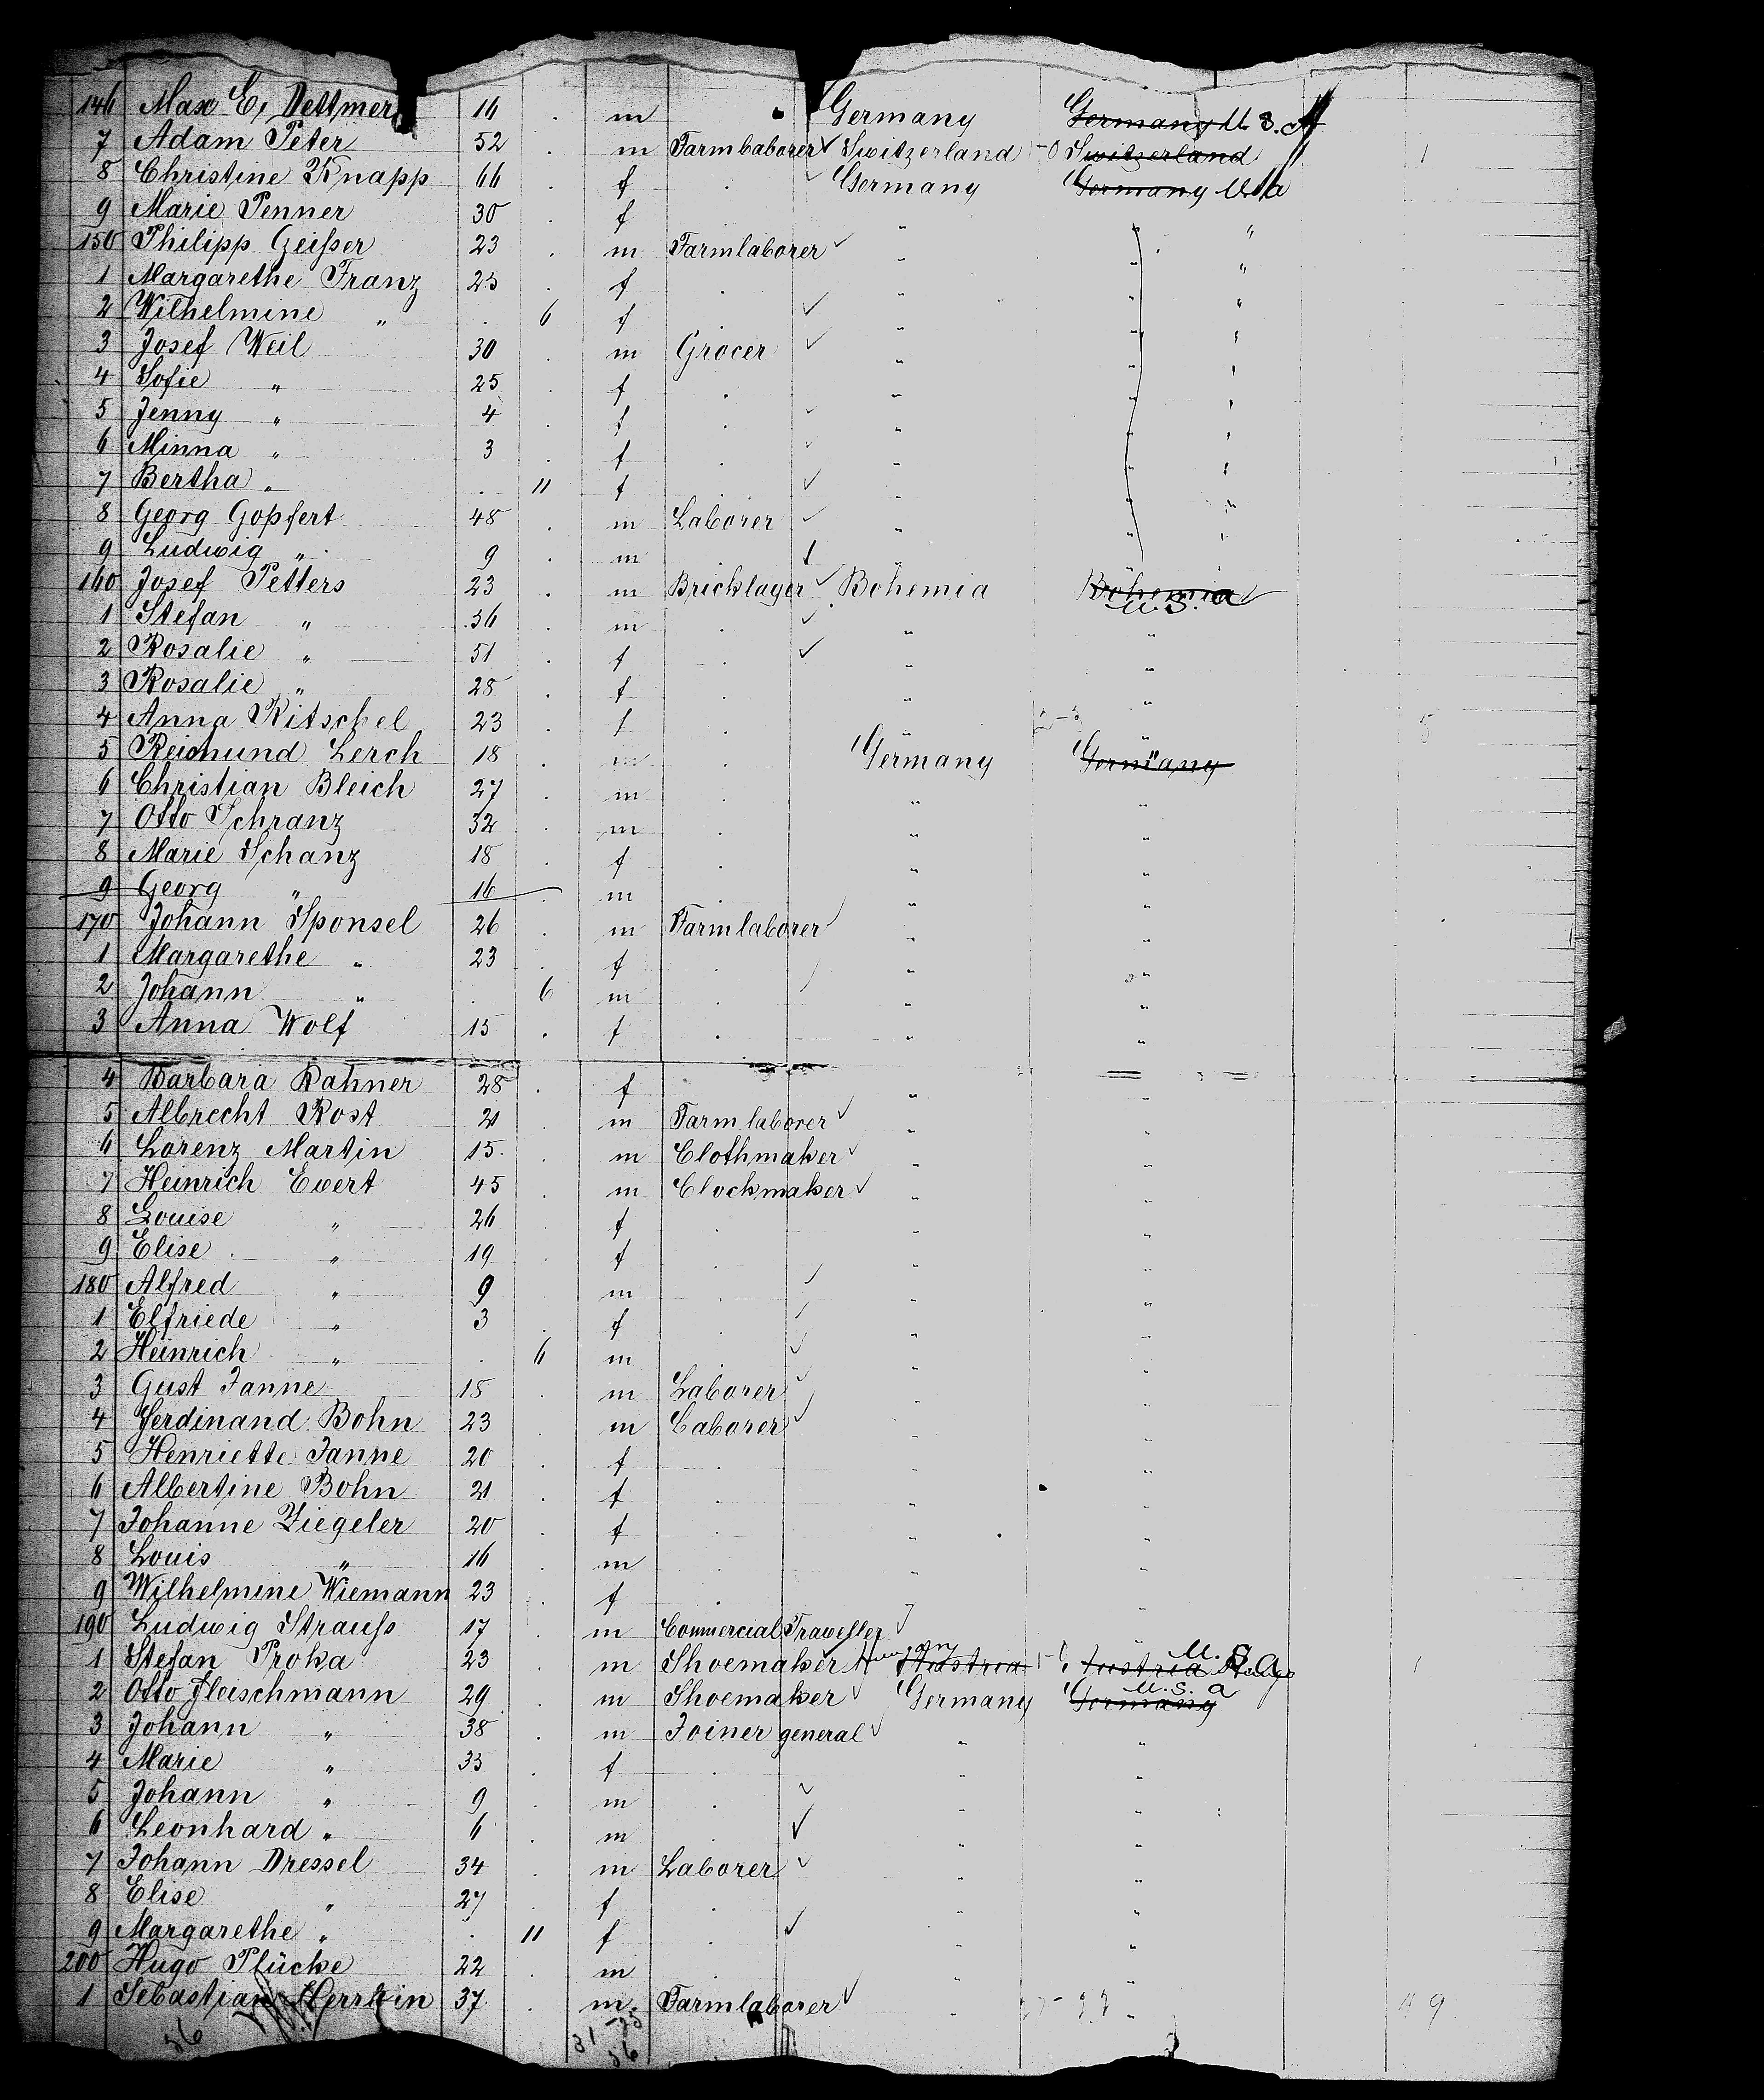 146 Max E, Dettmer 16 . m . Germany Germany U.S.A
7 Adam Peter 52 . m Farmlaborer ✓ Switzerland -0 Switzerland 1
8 Christine Knapp 66 . f . ✓ Germany Germany USa
9 Marie Penner 30 . f „ „ „
150 Philipp Geißer 23 . m Farmlaborer ✓ „ „ „
1 Margarethe Franz 23 . f . „ „ „
2 Wilhelmine „ . 6 f ✓ „ „ „
3 Josef Weil 30 . m Grocer ✓ „ „ „
4 Sofie „ 25 . f . „ „ „
5 Jenny „ 4 . f . ✓ „ „ „
6 Minna „ 3 . f . ✓ „ „ „
7 Bertha „ . 11 f ✓ „ „ „
8 Georg Gopfert 48 . m Laborer ✓ „ „ „
9 Ludwig „ 9 . m . ✓ „ „
160 Josef Petters 23 . m Bricklayer ✓ Bohemia Bohemia
U.S.a
1 Stefan „ 56 . m . ✓ „ „
2 Rosalie „ 51 . f . ✓ „ „
3 Rosalie „ 28 . f . „ „
4 Anna Ritschel 23 . f . „ „ 5
5 Reimund Lerch 18 . m . Germany Germany
6 Christian Bleich 27 . m . „ „
7 Otto Schranz 32 . m . „ „
8 Marie Schanz 18 . f . „ „
9 Georg „ 16 . m „ „
170 Johann Sponsel 26 . m Farmlaborer ✓ „ „
1 Margarethe „ 23 . f . „ „
2 Johann „ . 6 m . ✓ „ „
3 Anna Wolf 15 . f . „ „
4 Barbara Rahner 28 . f „ „
5 Albrecht Rost 21 . m Farmlaborer ✓ „ „
6 Lorenz Martin 15 . m Clothmaker ✓ „ „
7 Heinrich Evert 45 . m Clockmaker ✓ „ „
8 Louise „ 26 . f . „ „
9 Elise „ 19 . f . „ „
180 Alfred „ 9 m . ✓ „ „
1 Elfriede „ 3 . f . ✓ „ „
2 Heinrich „ . 6 m . ✓ „ „
3 Gust Janne 18 . m Laborer ✓ „ „
4 Ferdinand Bohn 23 m Laborer ✓ „ „
5 Henriette Janne 20 . f . „ „
6 Albertine Bohn 21 . f . „ „
7 Johanne Ziegeler 20 . f . „ „
8 Louis „ 16 m . „ „
9 Wilhelmine Wiemann 23 . f . „ „
190 Ludwig Strauß 17 . m Commercial Traveller ✓ „ „
1 Stefan Proka 23 . m Shoemaker ✓ Austria Austria U.S.a 1
2 Otto Fleischmann 29 . m Shoemaker ✓ Germany Germany U.S.a
3 Johann „ 38 . m Joiner general ✓ „ „
4 Marie „ 35 . f . „ „
5 Johann „ 9 . m . ✓ „ „
6 Leonhard „ 6 . m . ✓ „ „
7 Johann Dressel 34 . m Laborer ✓ „ „
8 Elise „ 27 . f . „ „
9 Margarethe „ . 11 f . ✓ „ „
200 Hugo Plücke 22 . m . „ „
1 Sebastian 37 . m. Farmlaborer ✓ „ „ 49
56 31 -25
56